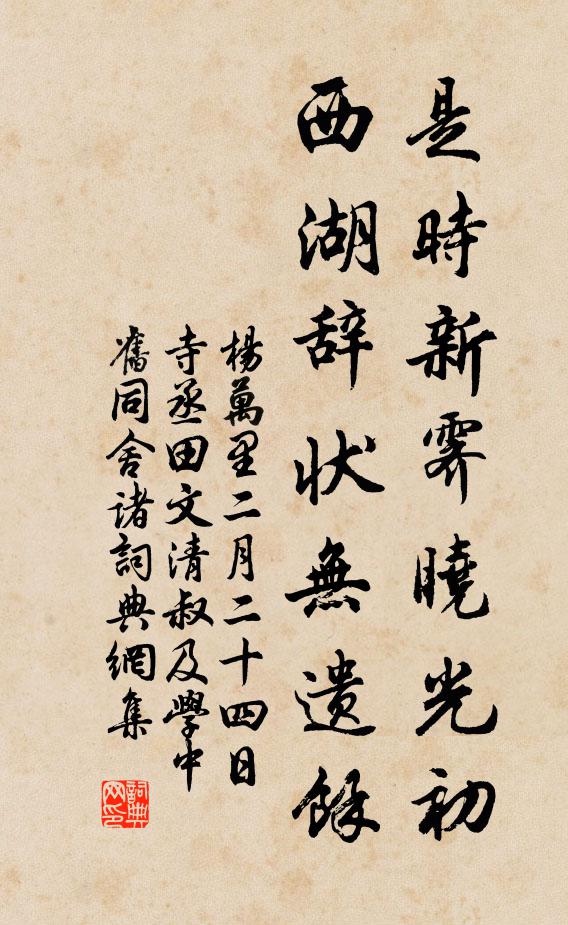 是時新霽曉光初
西湖辞状無遺餘
楊萬里二月二十四日
寺丞田文清叔及學中
舊同舍諸詞典網集
詞典网印